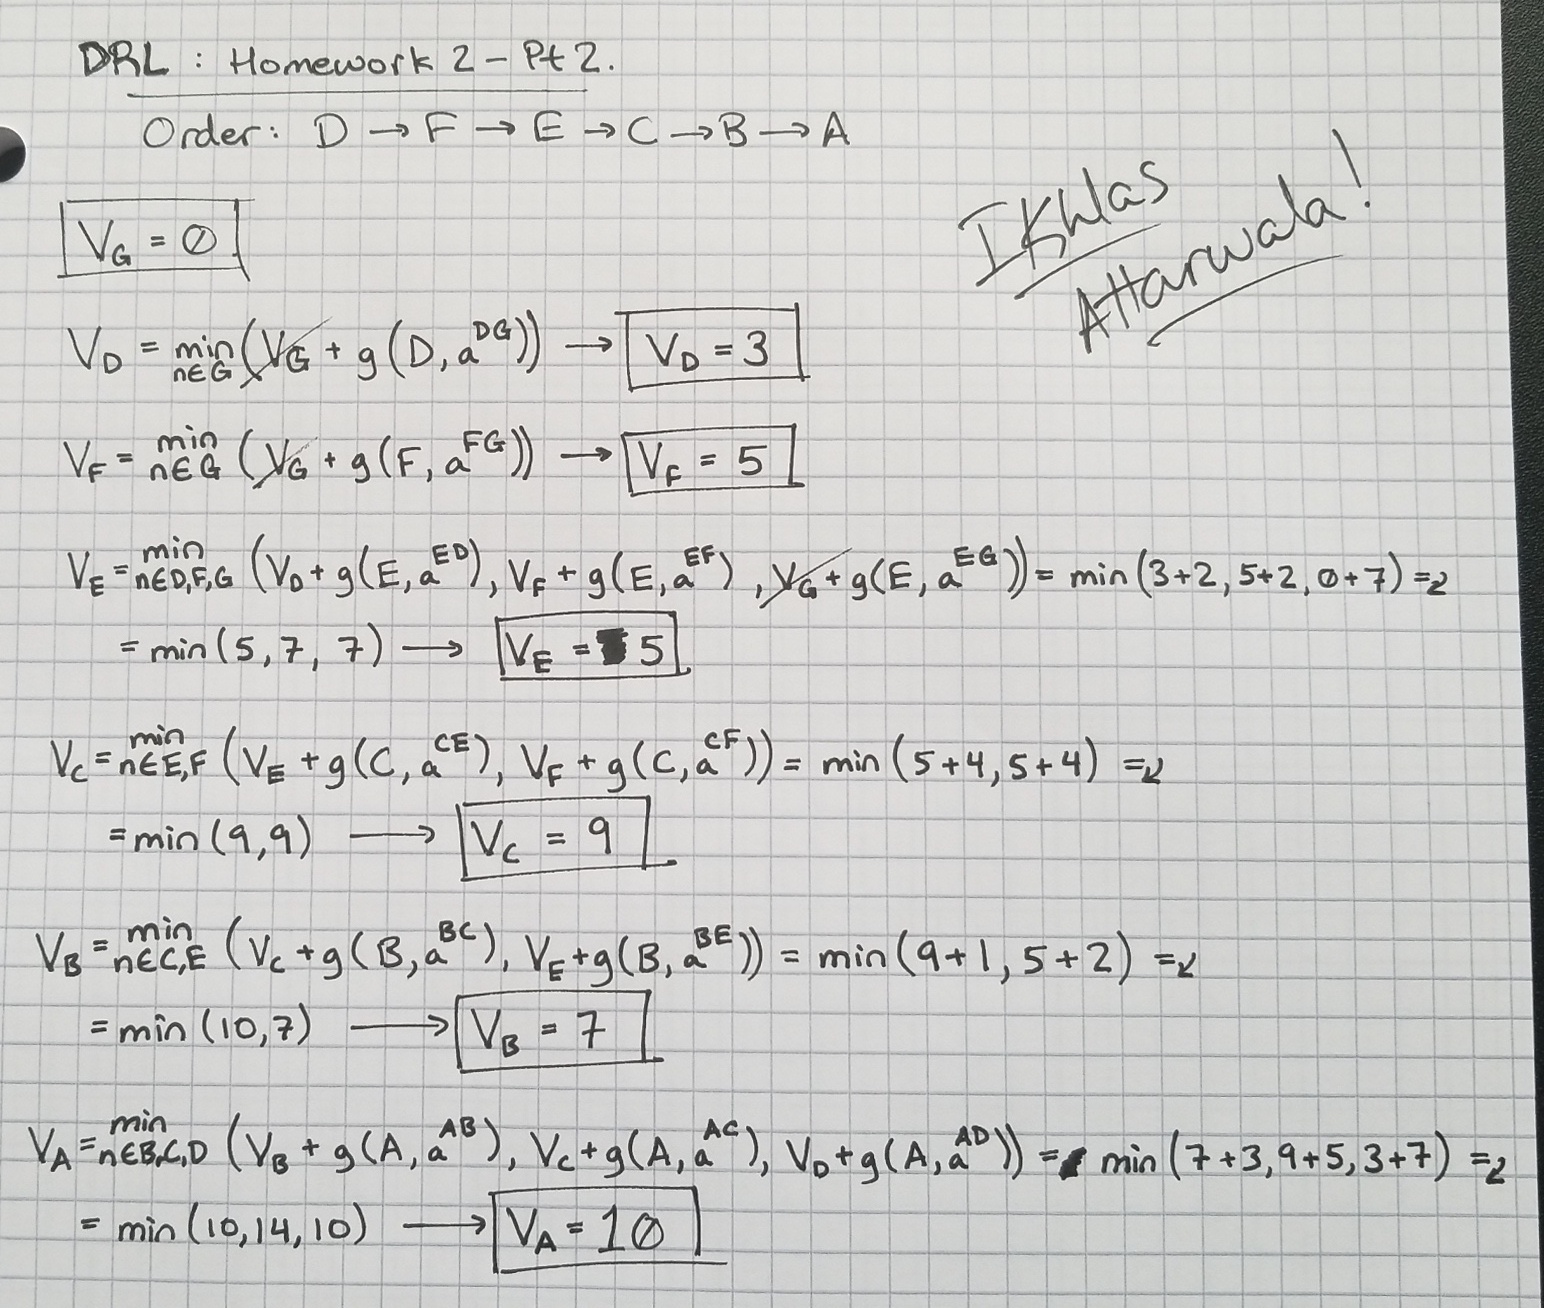 DRL : Homework 2 - Pt 2.
Order: D → F → E → C → B → A
Ikhlas
Attarwala!
V_G = 0
V_D = min_{n∈G} (V_G + g(D, a^{DG})) → V_D = 3
V_F = min_{n∈G} (V_G + g(F, a^{FG})) → V_F = 5
V_E = min_{n∈D,F,G} (V_D + g(E, a^{ED}), V_F + g(E, a^{EF}), V_G + g(E, a^{EG})) = min(3+2, 5+2, 0+7) =
= min(5, 7, 7) → V_E = 5
V_C = min_{n∈E,F} (V_E + g(C, a^{CE}), V_F + g(C, a^{CF})) = min(5+4, 5+4) =
= min(9,9) → V_C = 9
V_B = min_{n∈C,E} (V_C + g(B, a^{BC}), V_E + g(B, a^{BE})) = min(9+1, 5+2) =
= min(10,7) → V_B = 7
V_A = min_{n∈B,C,D} (V_B + g(A, a^{AB}), V_C + g(A, a^{AC}), V_D + g(A, a^{AD})) = min(7+3, 9+5, 3+7) =
= min(10,14,10) → V_A = 10